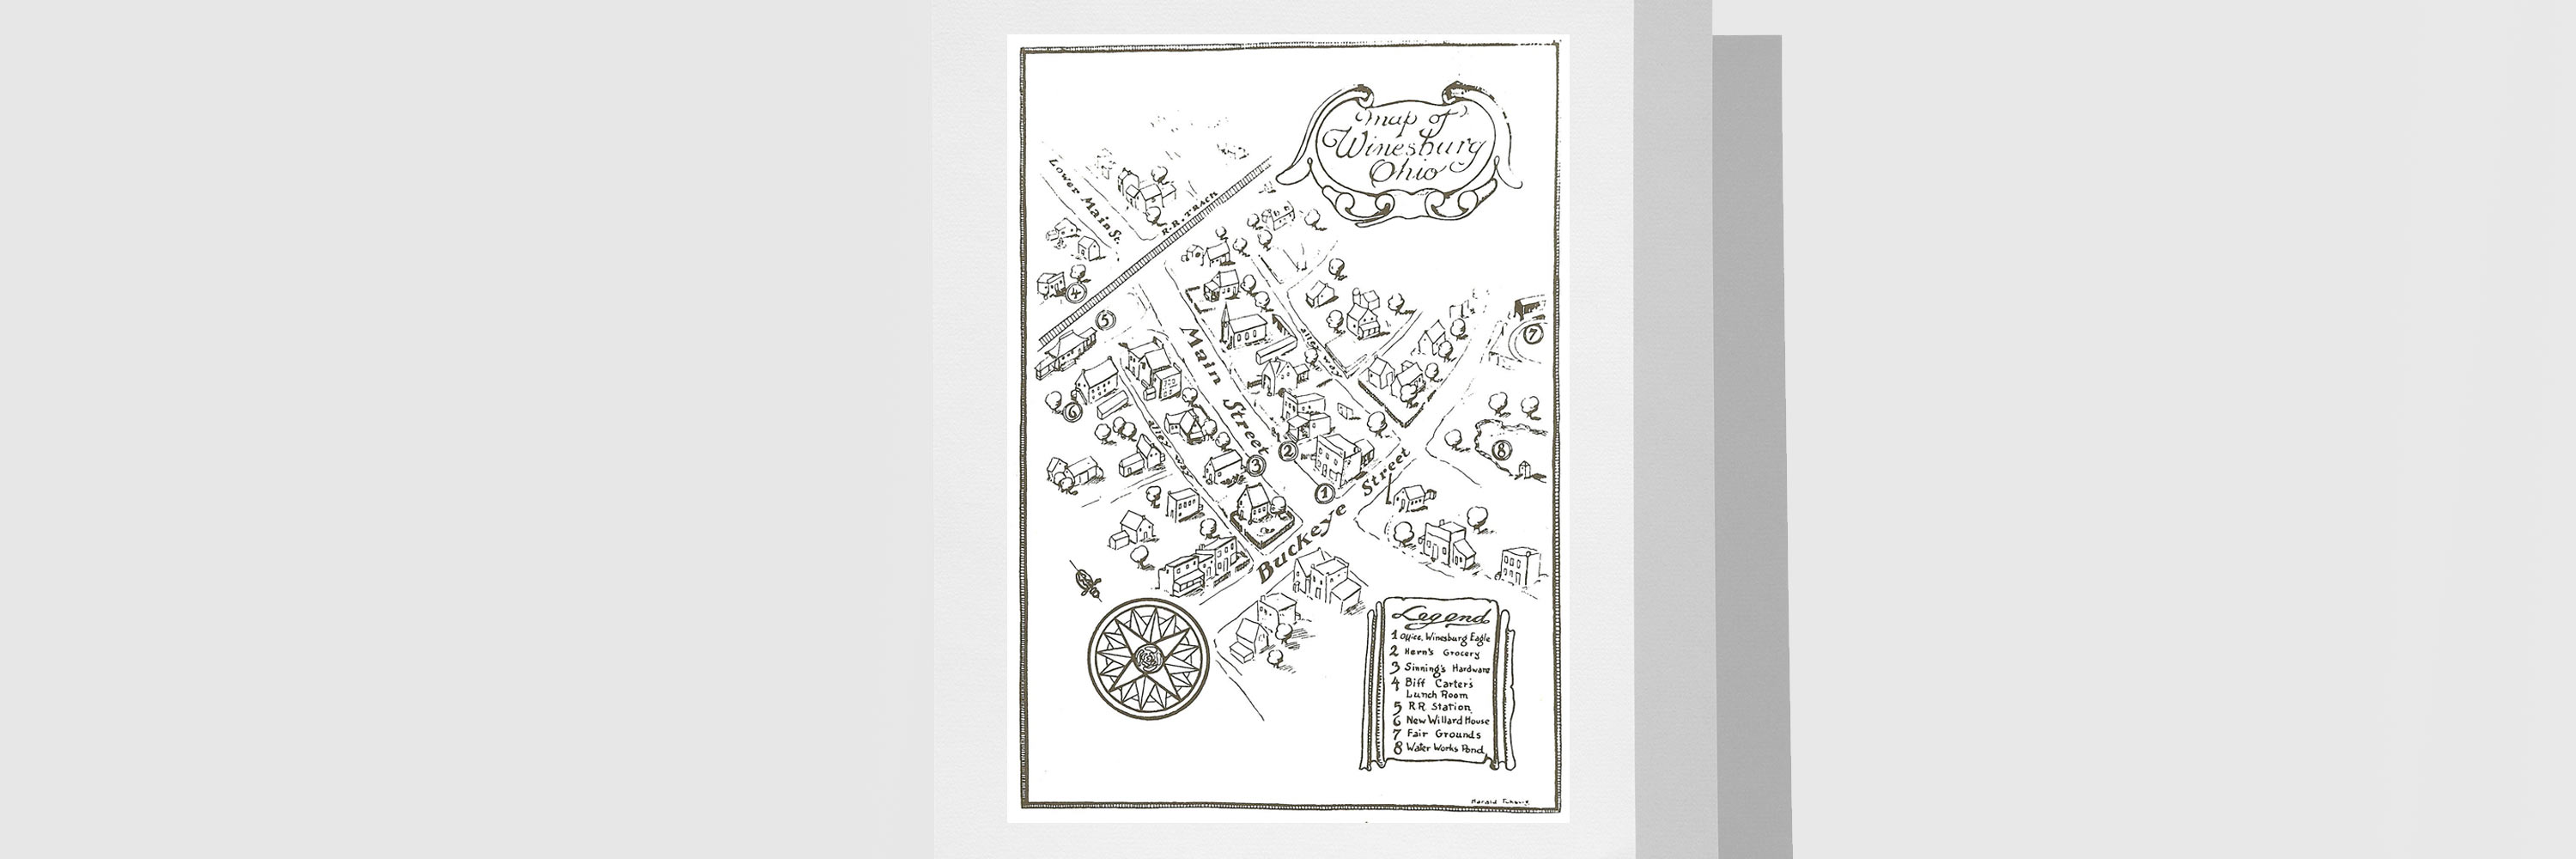 map of
Winesburg
Ohio
Lower Main St.
R.R. TRACK
4
5
7
Main Street
alley
6
alley way
8
3
2
1
Buckeye Street
Legend
1 Office, Winesburg Eagle
2 Hern's Grocery
3 Sinning's Hardware
4 Biff Carter's
Lunch Room
5 RR Station
6 New Willard House
7 Fair Grounds
8 Water Works Pond
Harald